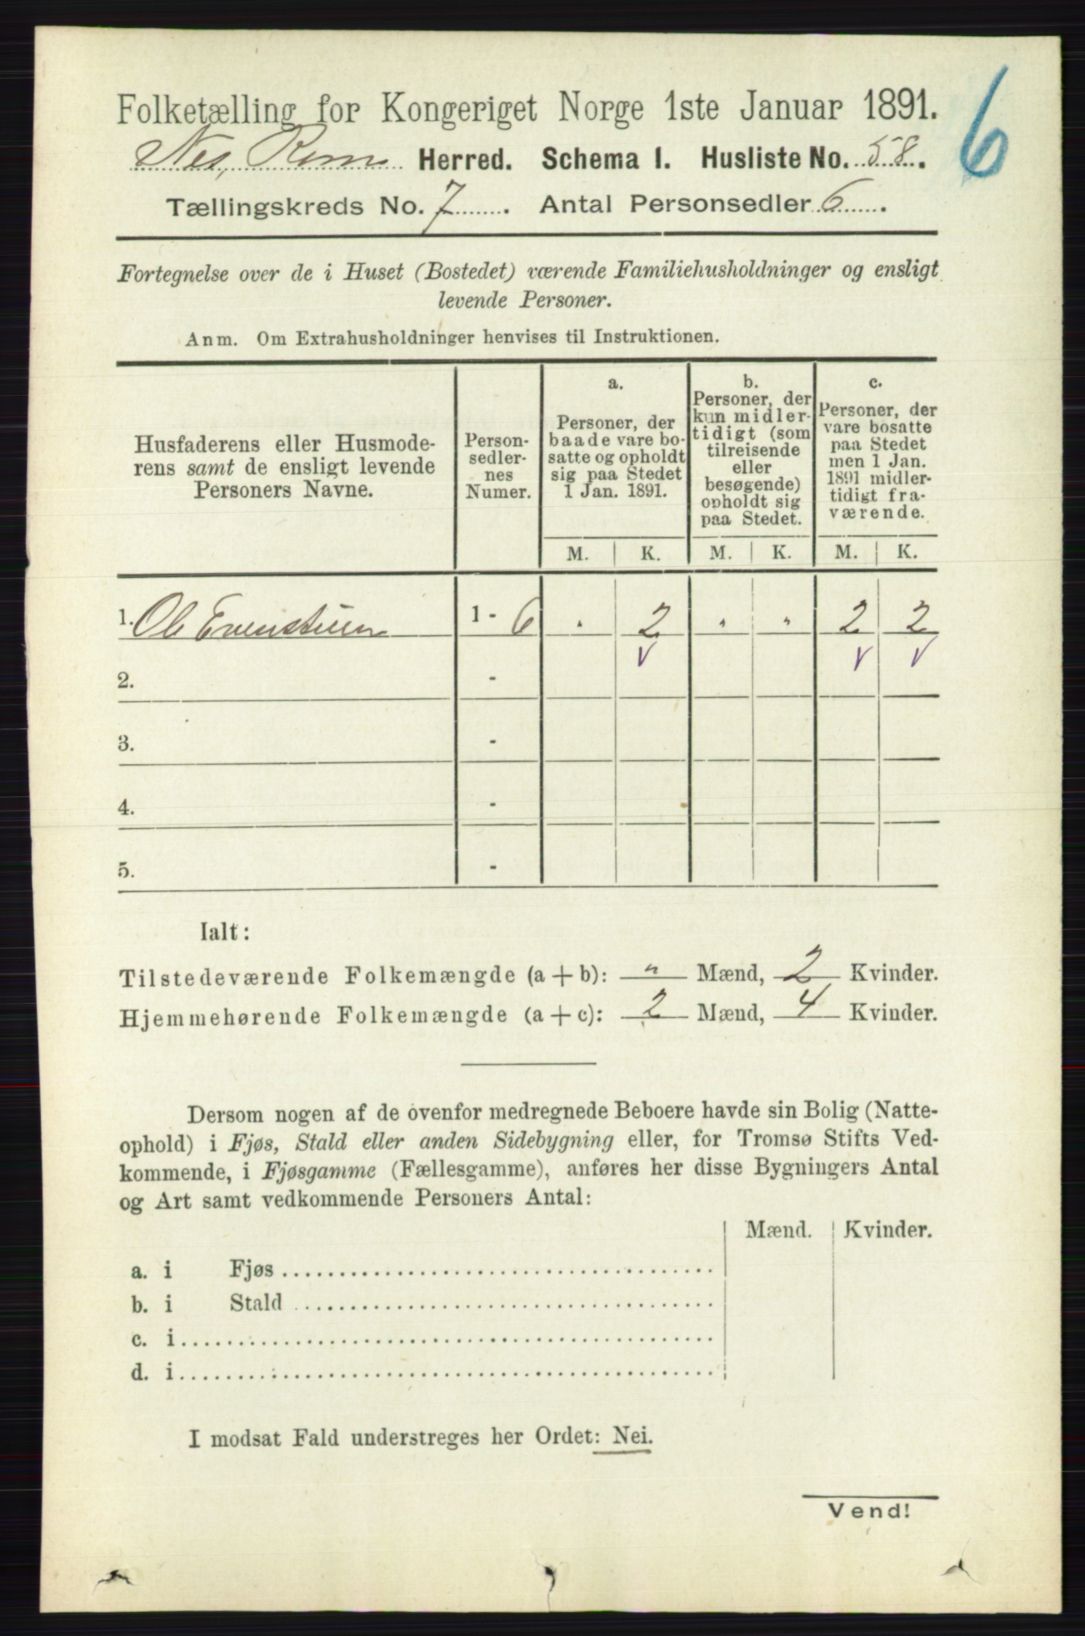 Folketælling for Kongeriget Norge 1ste Januar 1891.
6
Nes, Rom Herred. Schema I. Husliste No. 58.
Tællingskreds No. 7. Antal Personsedler 6.
Fortegnelse over de i Huset (Bostedet) værende Familiehusholdninger og ensligt
levende Personer.
Anm. Om Extrahusholdninger henvises til Instruktionen.
Husfaderens eller Husmode-
rens samt de ensligt levende
Personers Navne.
Person-
sedler-
nes
Numer.
a.
Personer, der
baade vare bo-
satte og opholdt
sig paa Stedet
1 Jan. 1891.
b.
Personer, der
kun midler-
tidigt (som
tilreisende
eller
besøgende)
opholdt sig
paa Stedet.
c.
Personer, der
vare bosatte
paa Stedet
men 1 Jan.
1891 midler-
tidigt fra-
værende.
M. K. M. K. M. K.
1. Ole 1 - 6 " 2 " " 2 2
2. -
3. -
4. -
5. -
Ialt:
Tilstedeværende Folkemængde (a + b): " Mænd, 2 Kvinder.
Hjemmehørende Folkemængde (a + c): 2 Mænd, 4 Kvinder.
Dersom nogen af de ovenfor medregnede Beboere havde sin Bolig (Natte-
ophold) i Fjøs, Stald eller anden Sidebygning eller, for Tromsø Stifts Ved-
kommende, i Fjøsgamme (Fællesgamme), anføres her disse Bygningers Antal
og Art samt vedkommende Personers Antal:
Mænd. Kvinder.
a. i Fjøs
b. i Stald
c. i
d. i
I modsat Fald understreges her Ordet: Nei.
Vend!